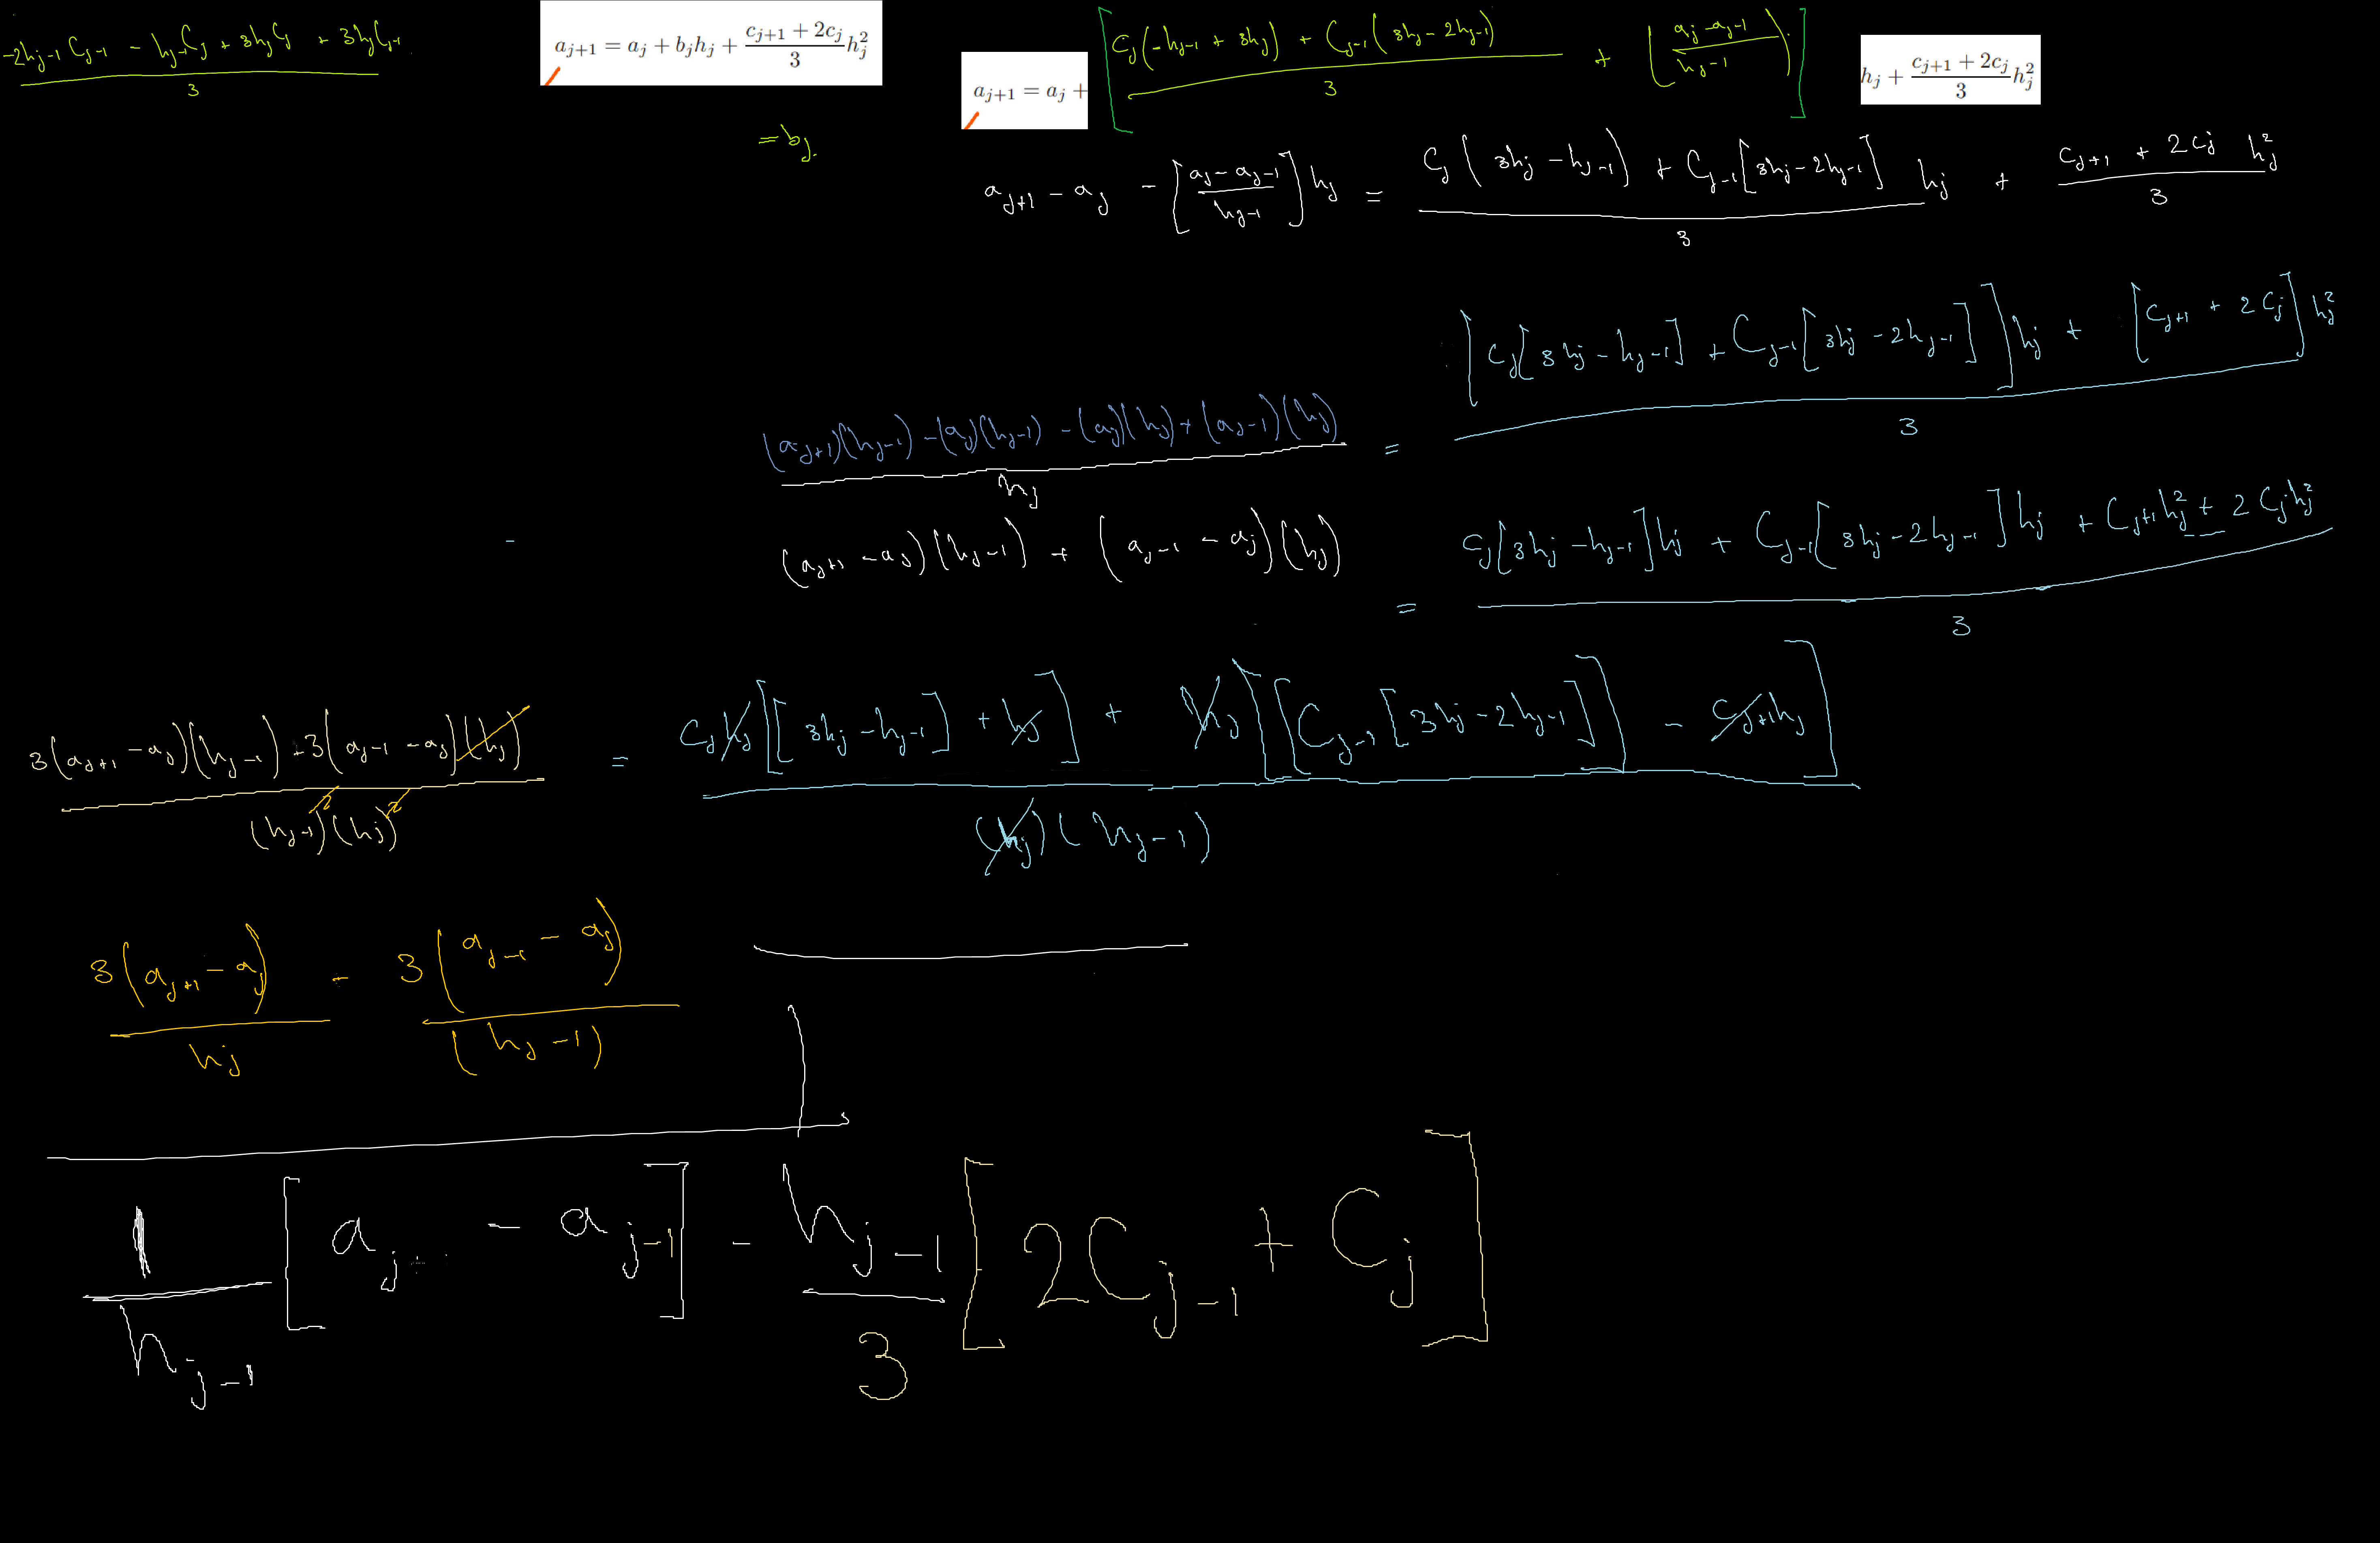 (-2h_{j-1}C_{j-1} - h_{j-1}C_j + 3h_jC_j + 3h_jC_{j-1})/3
a_{j+1} = a_j + b_jh_j + (c_{j+1} + 2c_j)/3 h_j^2
= b_j.
a_{j+1} = a_j + [(C_j(-h_{j-1} + 3h_j) + C_{j-1}(3h_j - 2h_{j-1}))/3 + ((a_j - a_{j-1})/h_{j-1})] h_j + (c_{j+1} + 2c_j)/3 h_j^2
a_{j+1} - a_j - [(a_j - a_{j-1})/h_{j-1}]h_j = (C_j(3h_j - h_{j-1}) + C_{j-1}[3h_j - 2h_{j-1}])/3 h_j + (C_{j+1} + 2C_j h_j^2)/3
((a_{j+1})(h_{j-1}) - (a_j)(h_{j-1}) - (a_j)(h_j) + (a_{j-1})(h_j))/h_j = ([C_j[3h_j - h_{j-1}] + C_{j-1}[3h_j - 2h_{j-1}]]h_j + [C_{j+1} + 2C_j]h_j^2)/3
(a_{j+1} - a_j)(h_{j-1}) + (a_{j-1} - a_j)(h_j) = (C_j[3h_j - h_{j-1}]h_j + C_{j-1}[3h_j - 2h_{j-1}]h_j + C_{j+1}h_j^2 + 2C_jh_j^2)/3
(3(a_{j+1} - a_j)(h_{j-1}) - 3(a_{j-1} - a_j)(h_j))/((h_{j-1})^2(h_j)^2) = (C_jh_j[[3h_j - h_{j-1}] + h_j] + h_j[[C_{j-1}[3h_j - 2h_{j-1}]] - C_{j+1}h_j])/((h_j)(h_{j-1}))
3(a_{j+1} - a_j)/h_j - 3(a_{j-1} - a_j)/(h_{j-1})
1/h_{j-1} [a_j - a_{j-1}] - h_{j-1}/3 [2C_{j-1} + C_j]